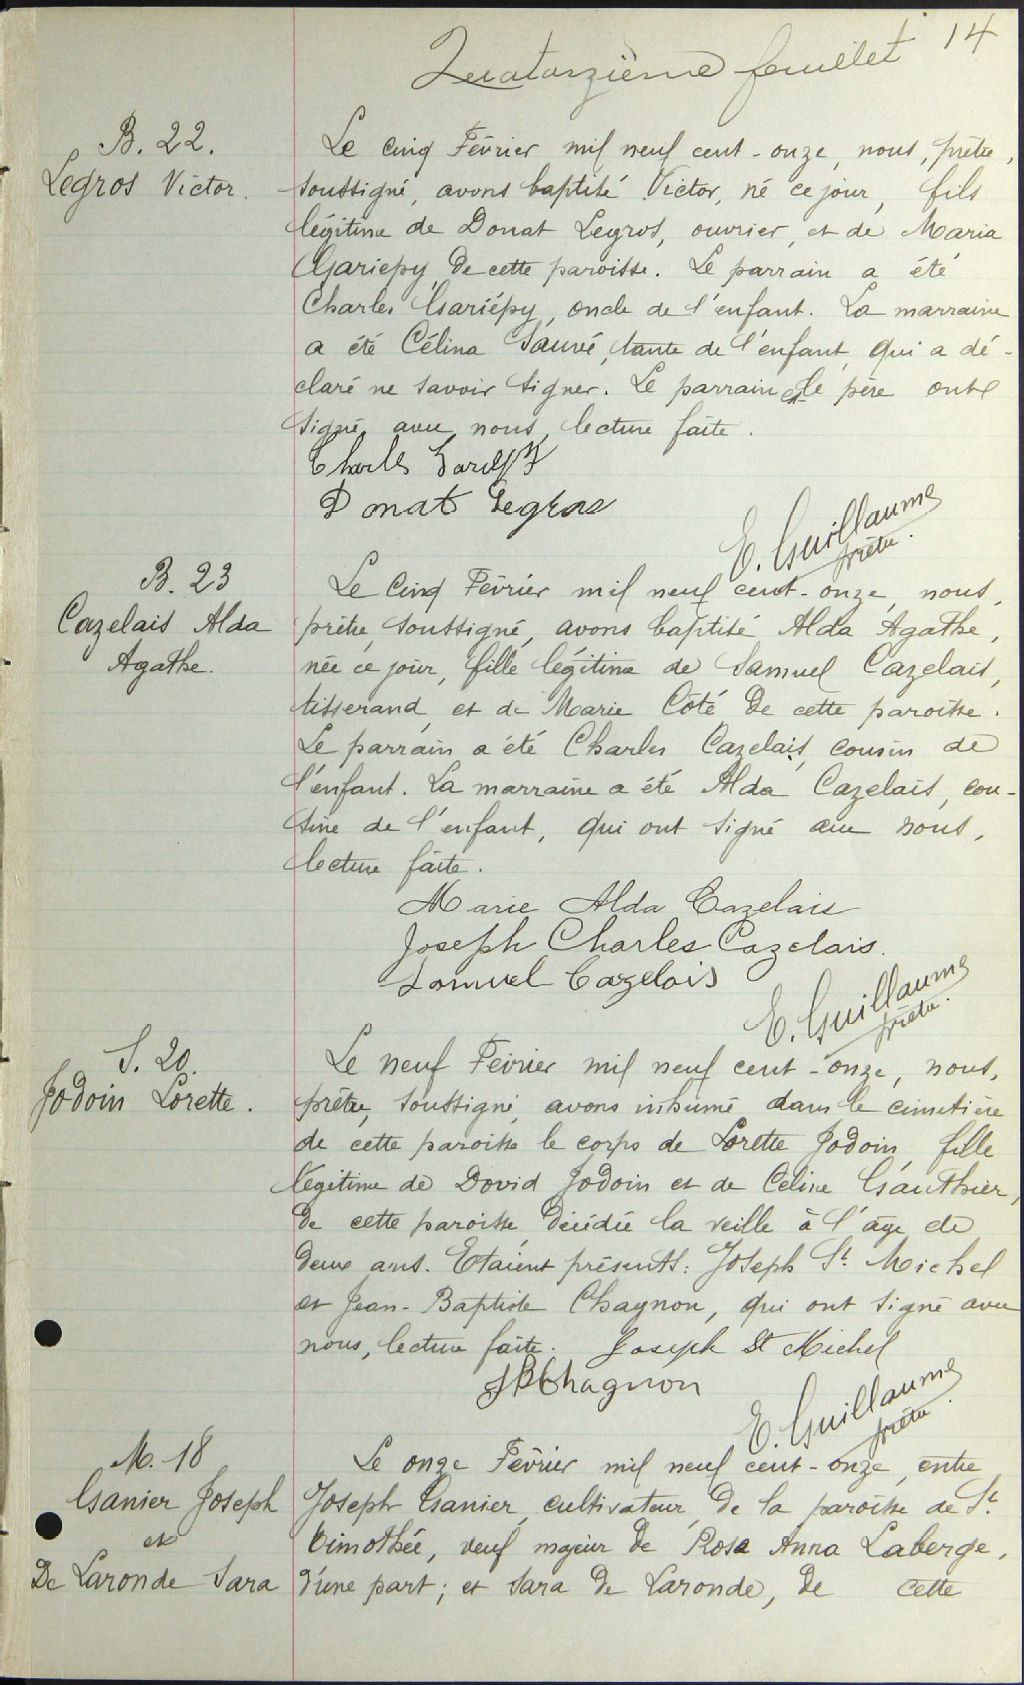 14
Quatorzième feuillet
B. 22.
Legros Victor.
Le cinq Février mil neuf cent-onze, nous, prêtre,
soussigné, avons baptisé Victor, né ce jour, fils
légitime de Donat Legros, ouvrier, et de Maria
Gariépy de cette paroisse. Le parrain a été
Charles Gariépy, oncle de l'enfant. La marraine
a été Célina Sauvé, tante de l'enfant, qui a dé-
claré ne savoir signer. Le parrain et le père ont
signé avec nous, lecture faite.
Charles Gariepy
Donat Legros
E. Guillaume
prêtre.
B. 23
Cazelais Alda
Agathe.
Le cinq Février mil neuf cent-onze, nous,
prêtre, soussigné, avons baptisé Alda Agathe,
née ce jour, fille légitime de Samuel Cazelais,
tisserand, et de Marie Côté de cette paroisse.
Le parrain a été Charles Cazelais, cousin de
l'enfant. La marraine a été Alda Cazelais, cou-
sine de l'enfant, qui ont signé avec nous,
lecture faite.
Marie Alda Cazelais
Joseph Charles Cazelais.
Samuel Cazelais
E. Guillaume
prêtre.
S. 20.
Jodoin Lorette.
Le neuf Février mil neuf cent-onze, nous,
prêtre, soussigné, avons inhumé dans le cimetière
de cette paroisse le corps de Lorette Jodoin, fille
légitime de David Jodoin et de Celine Gauthier,
de cette paroisse, décédée la veille à l'âge de
deux ans. Etaient présents: Joseph St. Michel
et Jean-Baptiste Chagnon, qui ont signé avec
nous, lecture faite. Joseph St Michel
JBChagnon
E. Guillaume
prêtre.
M. 18
Ganier Joseph
et
De Laronde Sara
Le onze Février mil neuf cent-onze, entre
Joseph Ganier, cultivateur, de la paroisse de St.
Timothée, veuf majeur de Rose Anna Laberge,
d'une part; et Sara de Laronde, de cette